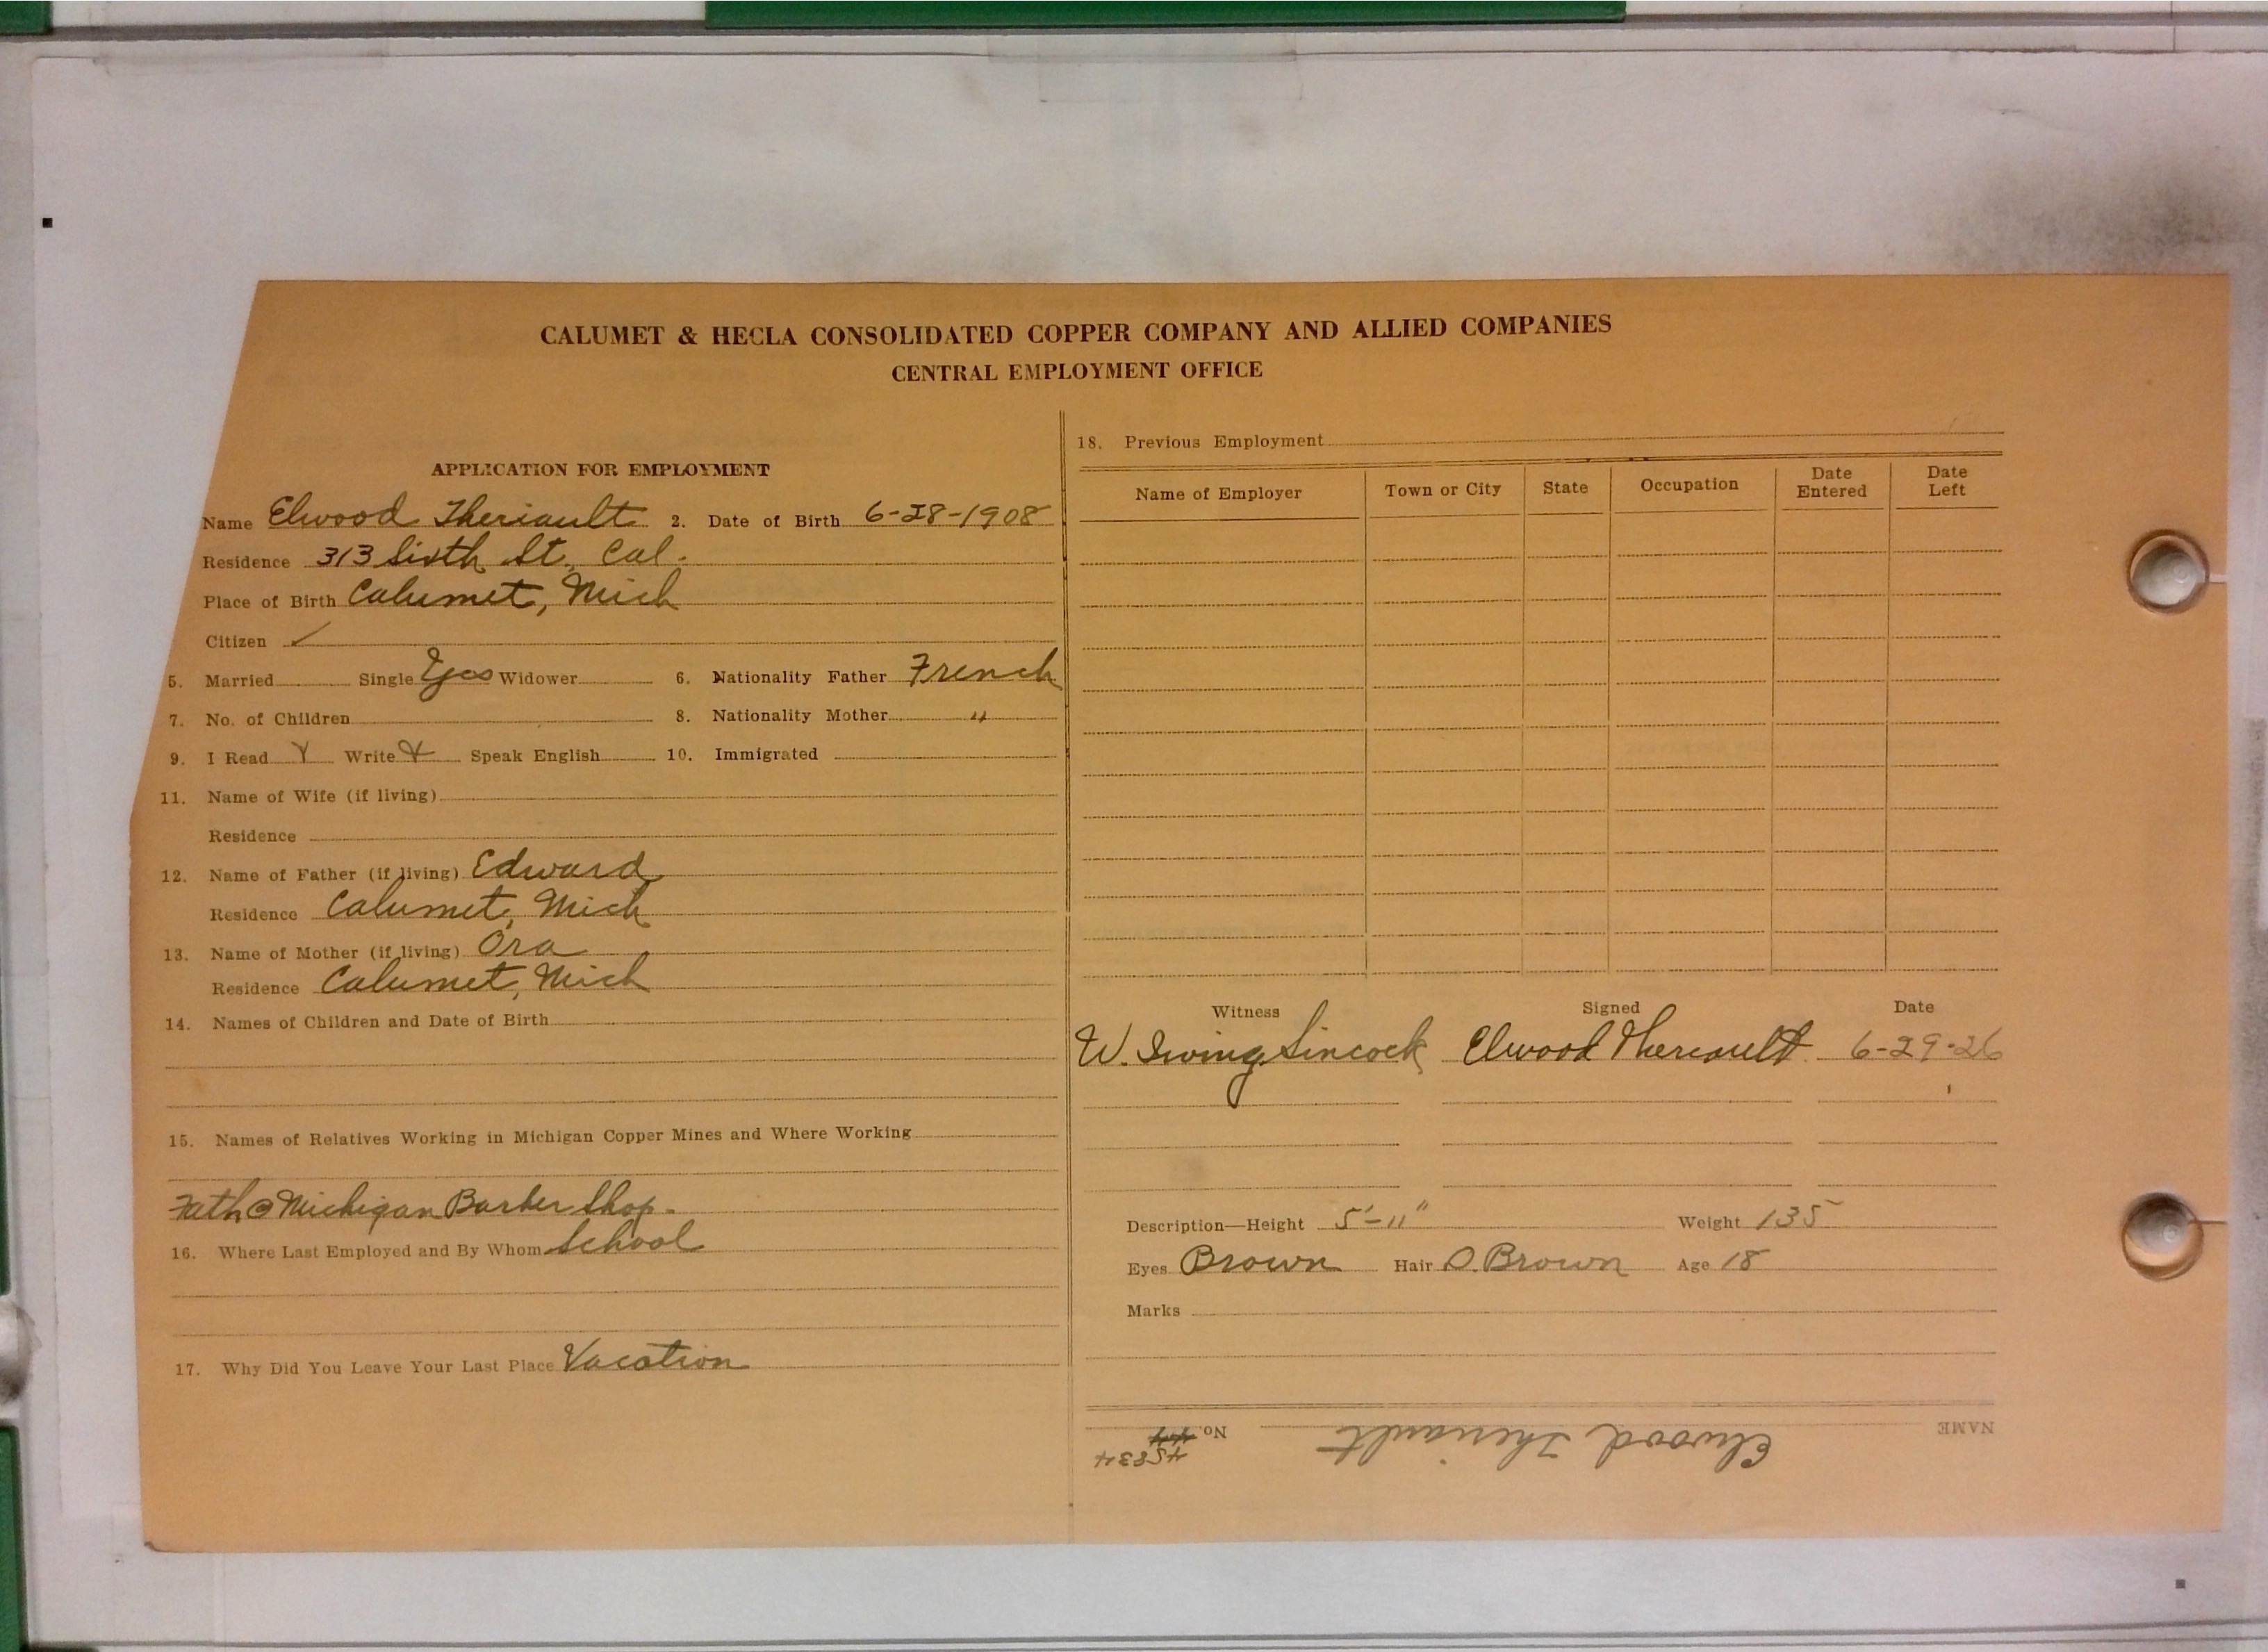 CALUMET & HECLA CONSOLIDATED COPPER COMPANY AND ALLIED COMPANIES
CENTRAL EMPLOYMENT OFFICE
APPLICATION FOR EMPLOYMENT
Name Elwood Theriault 2. Date of Birth 6-28-1908
Residence 313 Sixth St., Cal.
Place of Birth Calumet, Mich
Citizen ✓
5. Married Single Yes Widower 6. Nationality Father French
7. No. of Children 8. Nationality Mother "
9. I Read Y Write Y Speak English 10. Immigrated
11. Name of Wife (if living)
Residence
12. Name of Father (if living) Edward
Residence Calumet, Mich
13. Name of Mother (if living) Ora
Residence Calumet, Mich
14. Names of Children and Date of Birth
15. Names of Relatives Working in Michigan Copper Mines and Where Working
Fath @ Michigan Barber Shop.
16. Where Last Employed and By Whom School
17. Why Did You Leave Your Last Place Vacation
18. Previous Employment
Name of Employer Town or City State Occupation Date Entered Date Left
Witness Signed Date
W. Irving Sincock Elwood Theriault 6-29-26
Description—Height 5'-11" Weight 135
Eyes Brown Hair D. Brown Age 18
Marks
NAME Elwood Theriault No.
45834